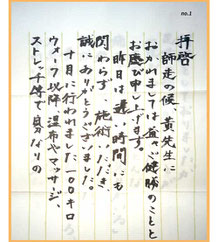 no.1
拝啓
師走の候 黄先生に
おかれましては益々ご健勝のことと
お慶び申し上げます。
昨日は遅い時間にも
関わらず、施術いただき
誠にありがとうございました。
十月に行われました一〇〇キロ
ウォーク以降、湿布やマッサージ、
ストレッチ等で自分なりの